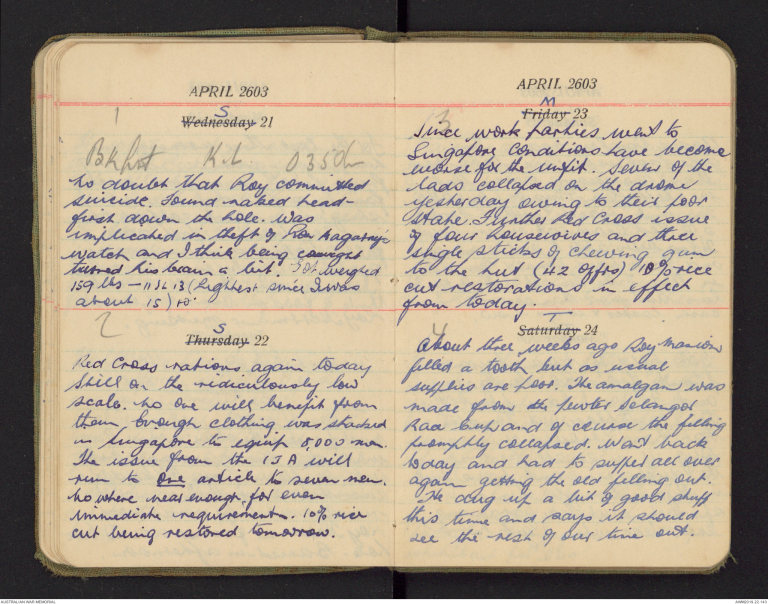 APRIL 2603
S
Wednesday 21
1
Bkfast K.L. 0350
No doubt that Roy committed
suicide. Found naked head-
first down the hole. Was
implicated in theft of
watch and I think being caught
turned his brain a bit. Got weighed
159 lbs – 11 st 13 (highest since I was
about 15)
S
Thursday 22
2
Red Cross rations again today
still on the ridiculously low
scale. No one will benefit from
them. Enough clothing was stacked
in Singapore to equip 8,000 men.
The issue from the IJA will
run to one article to seven men.
Nowhere near enough for even
immediate requirements. 10% rice
cut being restored tomorrow.
APRIL 2603
M
Friday 23
3
Since work parties went to
Singapore conditions have become
worse for the unfit. Seven of the
lads collapsed on the drome
yesterday owing to their poor
state. Further Red Cross issue
of four housewives and three
single sticks of chewing gum
to the hut (42 offrs) 10% rice
cut restorations in effect
from today.
T
Saturday 24
4
About three weeks ago Roy
filled a tooth but as usual
supplies are poor. The amalgam was
made from the pewter Selangor
Race Cup and of course the filling
promptly collapsed. Went back
today and had to suffer all over
again getting the old filling out.
He dug up a bit of good stuff
this time and says it should
see the rest of our time out.
AUSTRALIAN WAR MEMORIAL